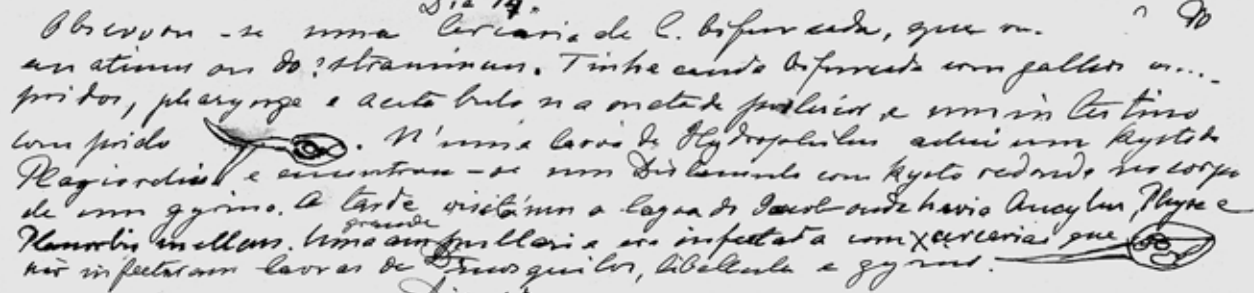 Dia 14.
Observou-se uma Cercaria de C. bifurcada, que
ou do ?stramineus. Tinha cauda bifurcada com galhos
pridos, pharynge e acetabulo na metade posterior e um intestino
comprido . N'uma larva de Hydrophilus achei um kysto de
Plagiorchis e encontrou-se um Distomulo com kysto redondo no corpo
de um gyrino. A tarde visitámos a lagoa do onde havia Ancylus, Physa e
Planorbis melleus. Uma grande ampullaria era infectada com x cercarias que
não infectaram larvas de mosquitos, libellula e gyrinos.